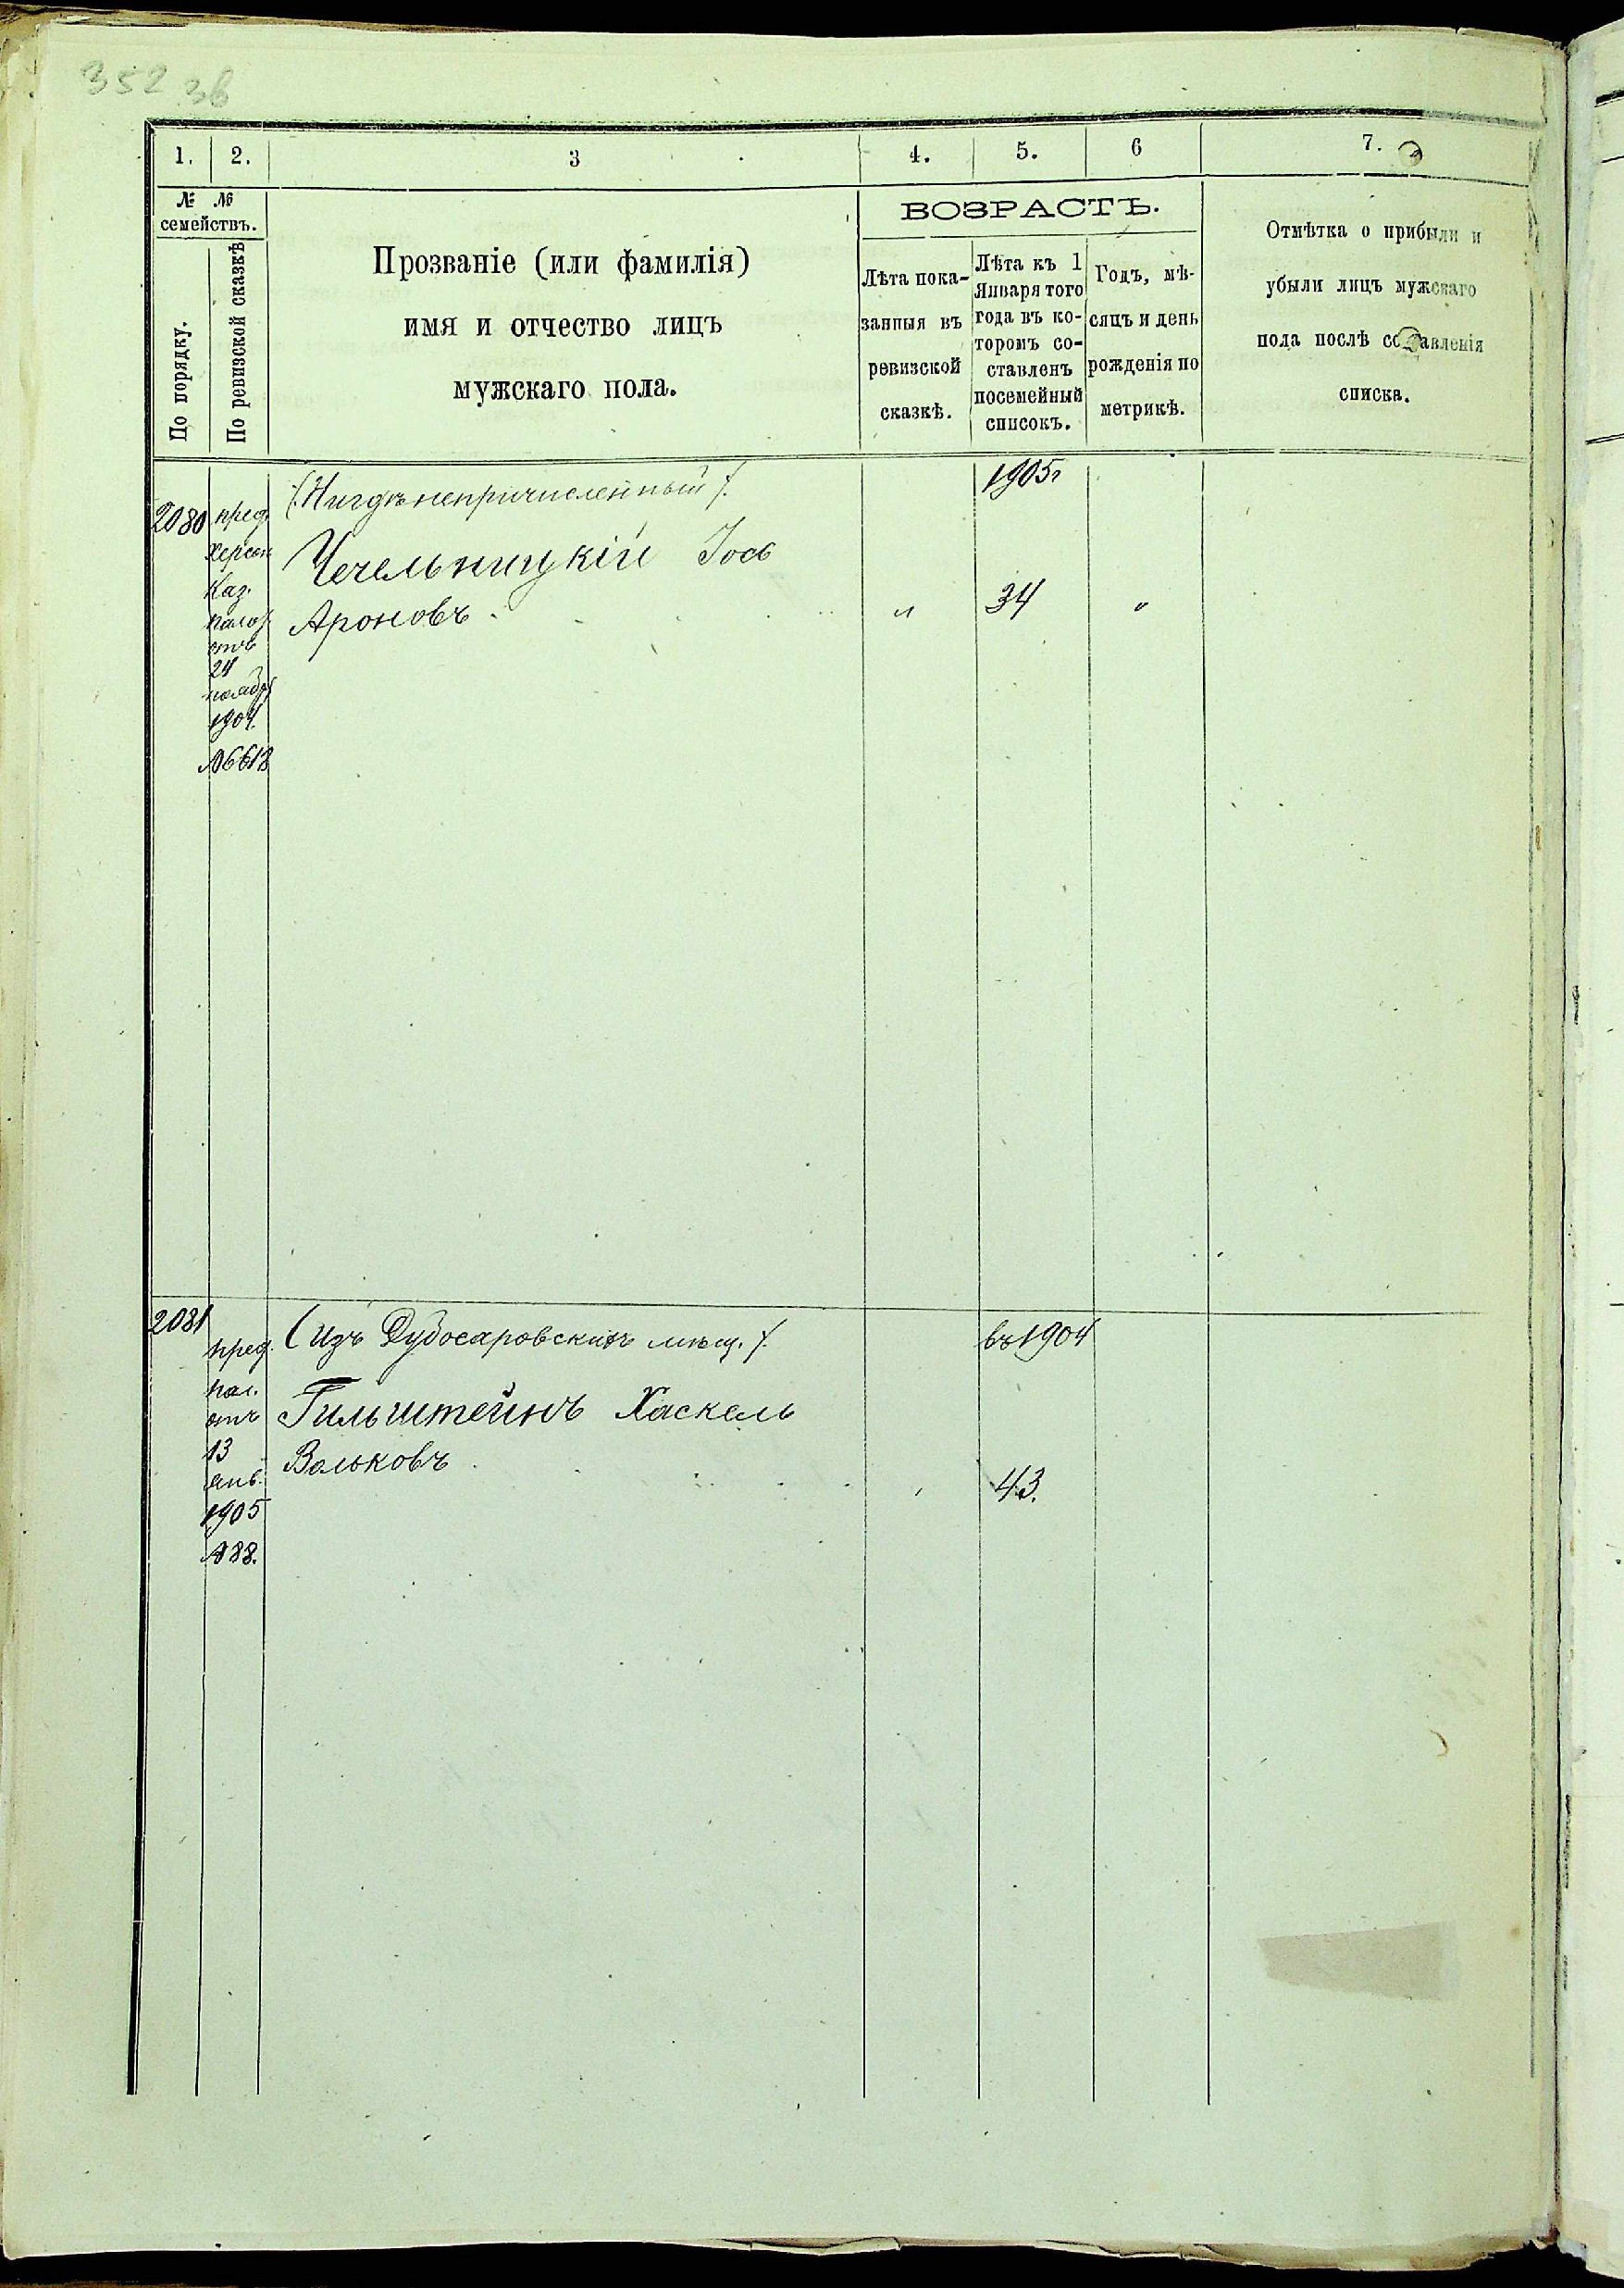 352 зв
1. 2. 3 4. 5. 6 7.
№ №
семействъ.
По порядку.
По ревизской сказкѣ
Прозваніе (или фамилія)
имя и отчество лицъ
мужскаго пола.
ВОЗРАСТЪ.
Лѣта пока-
занныя въ
ревизской
сказкѣ.
Лѣта къ 1
Января того
года въ ко-
торомъ со-
ставленъ
посемейный
списокъ.
Годъ, мѣ-
сяцъ и день
рожденія по
метрикѣ.
Отмѣтка о прибыли и
убыли лицъ мужскаго
пола послѣ составленія
списка.
2080
пред.
Херсон
Каз.
палат
отъ
24
ноябр
1904.
№6618
(Нигдѣ непричисленный).
Чечельницкій Іось
Ароновъ
1905г
" 34 "
2081
пред.
пал.
отъ
13
янв.
1905
№88.
(Изъ Дубосаровскихъ мѣщ.).
Гильштейнъ Хаскель
Вольковъ
въ 1904
43.